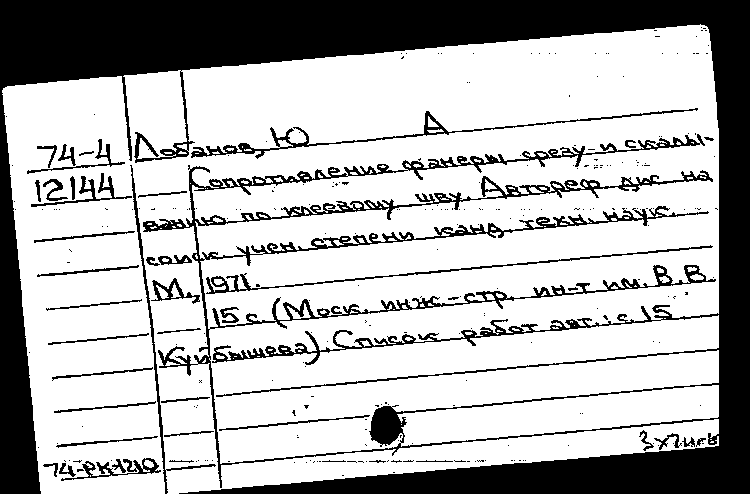 74-4 Лобанов, Ю А
12144 Сопротивление фанеры срезу и скалы-
ванию по клеевому шву. Автореф. дис. на
соиск. учен. степени канд. техн. наук.
М., 1971.
15 с. (Моск. инж.-стр. ин-т им. В.В.
Куйбышева). Список работ авт.: с. 15
74-РК-1210